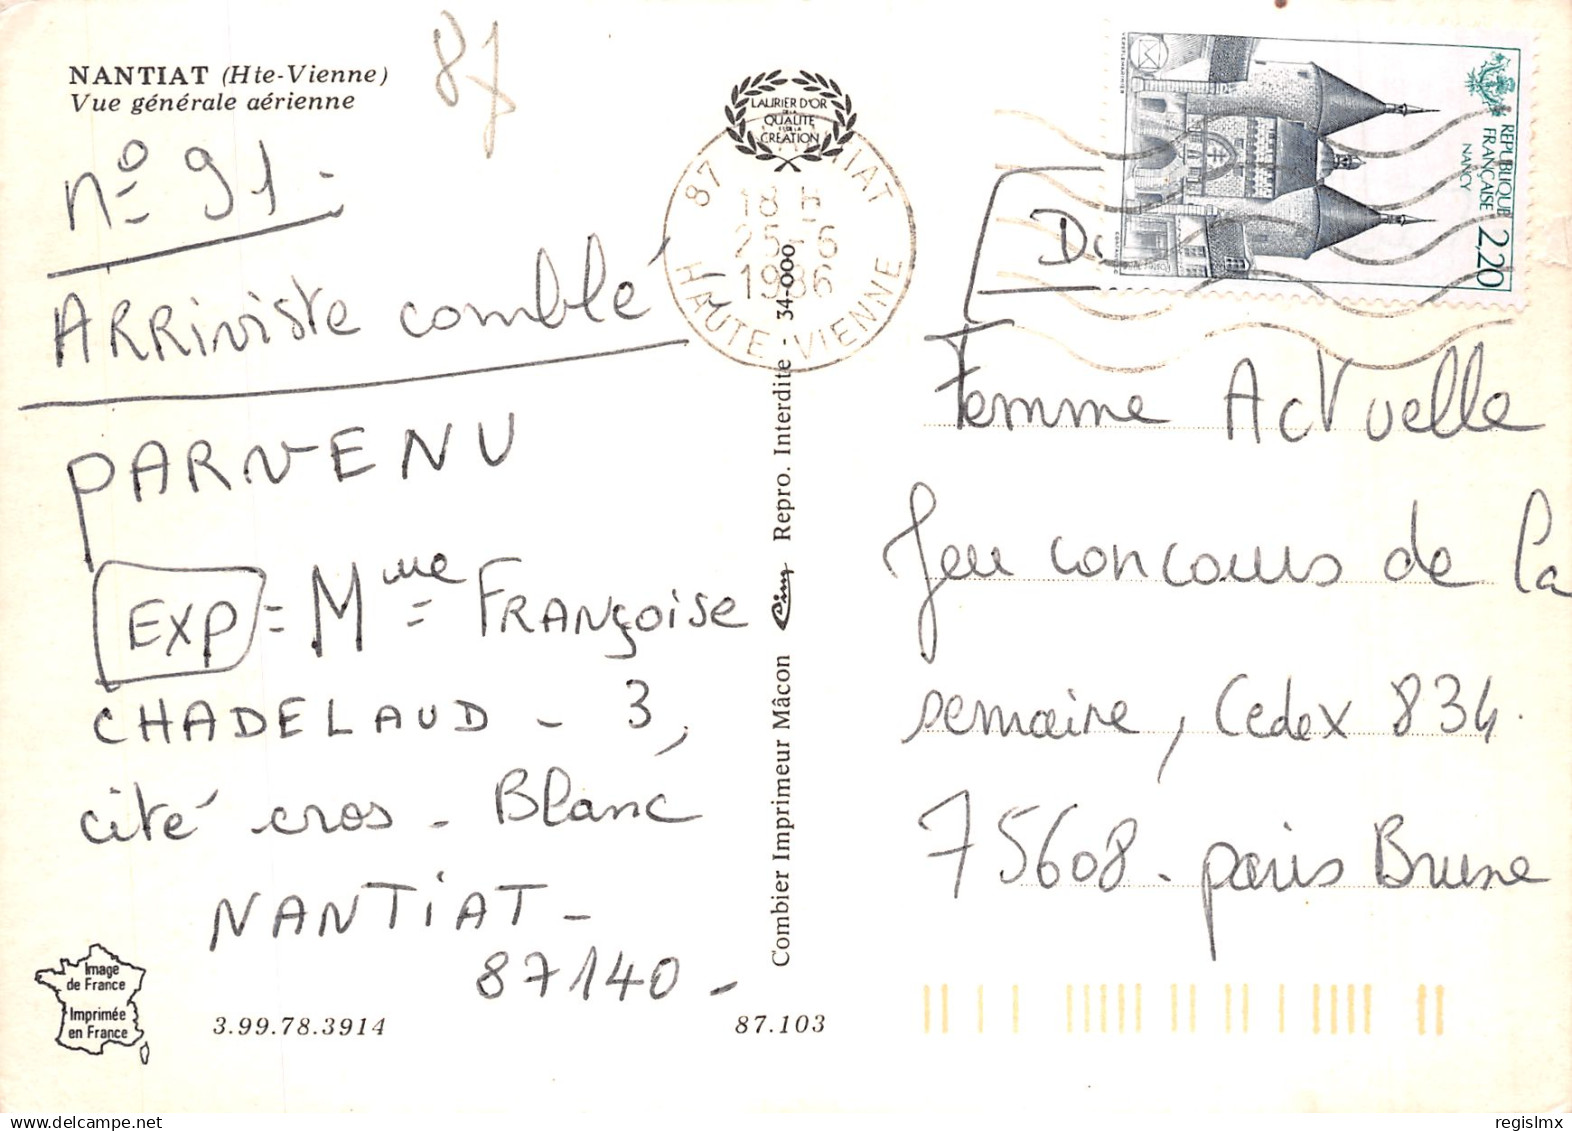 NANTIAT (Hte-Vienne)
Vue générale aérienne
87
n° 91.
ARRiviste comblé
PARVENU
EXP = Mme = FRANçoise
CHADELAUD - 3,
cité cros - Blanc
NANTiAT -
87140 -
Image
de France
Imprimée
en France
3.99.78.3914
87.103
LAURIER D'OR
DE LA
QUALITÉ
ET DE LA
CRÉATION
87 NANTIAT
18 H
25-6
1986
HAUTE-VIENNE
Combier Imprimeur Mâcon Cim Repro. Interdite - 34-000
RÉPUBLIQUE
FRANÇAISE 2,20
NANCY
Femme Actuelle
Jeu concours de la
semaine, Cedex 834.
75608 - paris Brune
regislmx